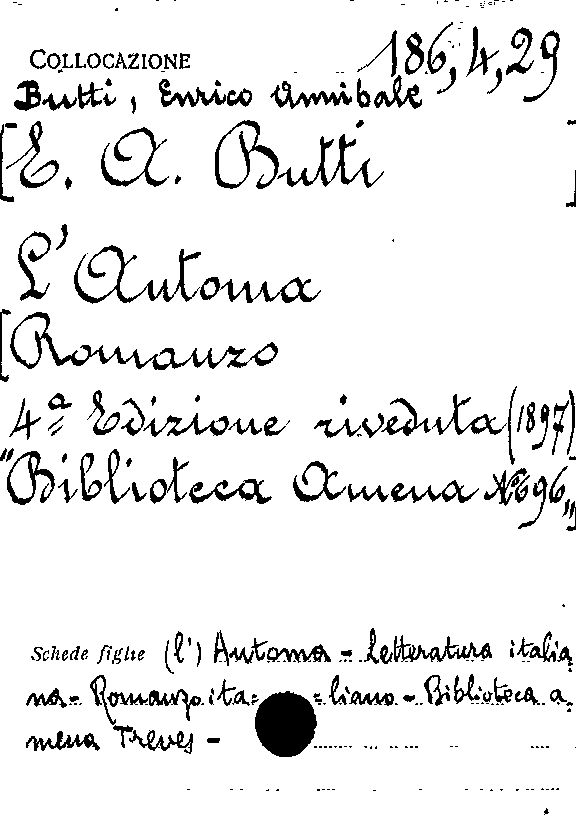 COLLOCAZIONE 186,4,29
Butti, Enrico Annibale
[E. A. Butti]
L'Automa
[Romanzo
4ª Edizione riveduta (1897)
"Biblioteca Amena Nº 696"]
Schede figlie (l') Automa - Letteratura italia
na - Romanzo ita= =liano - Biblioteca a.
mena Treves -